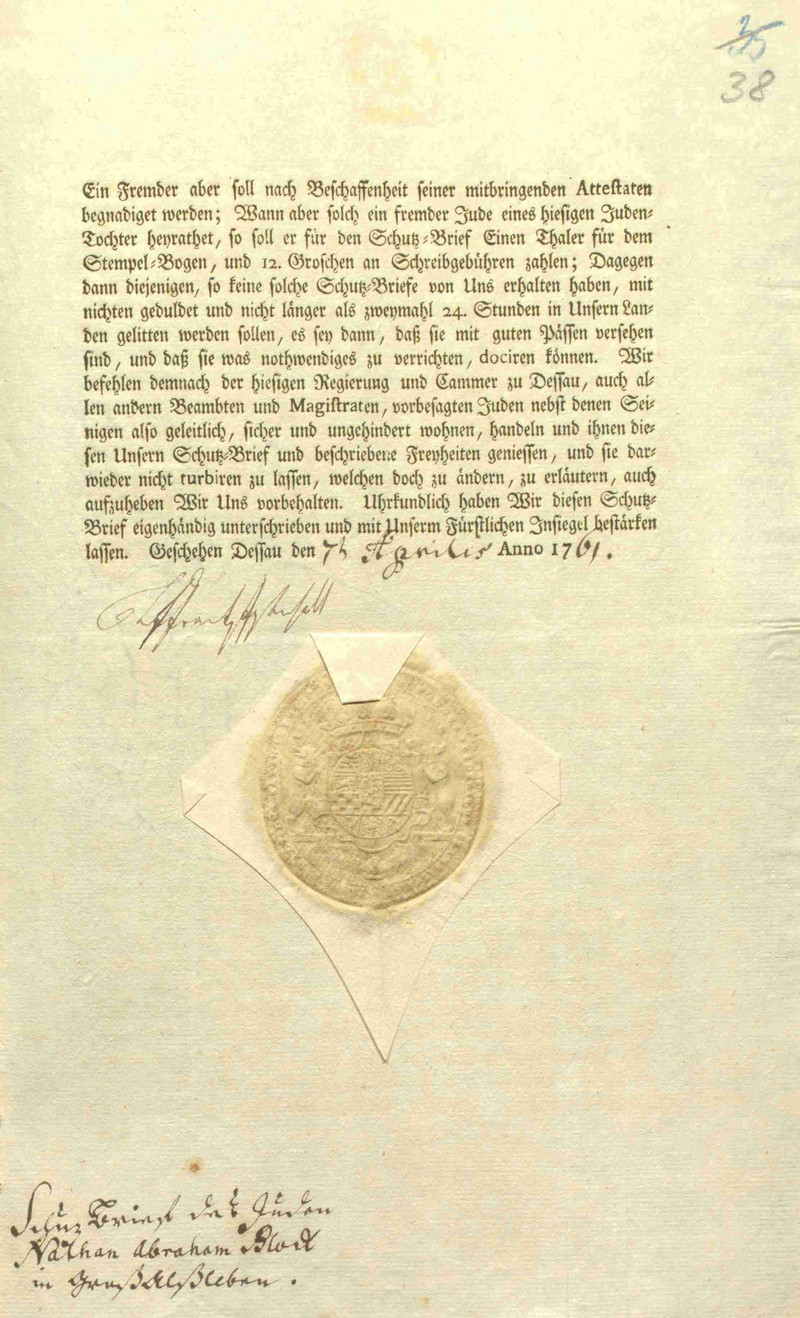 35
38
Ein Fremder aber soll nach Beschaffenheit seiner mitbringenden Attestaten
begnadiget werden; Wann aber solch ein fremder Jude eines hiesigen Juden-
Tochter heyrathet, so soll er für den Schutz-Brief Einen Thaler für dem
Stempel-Bogen, und 12. Groschen an Schreibgebühren zahlen; Dagegen
dann diejenigen, so keine solche Schutz-Briefe von Uns erhalten haben, mit
nichten geduldet und nicht länger als zweymahl 24. Stunden in Unsern Lan-
den gelitten werden sollen, es sey dann, daß sie mit guten Pässen versehen
sind, und daß sie was nothwendiges zu verrichten, dociren können. Wir
befehlen demnach der hiesigen Regierung und Cammer zu Dessau, auch al-
len andern Beambten und Magistraten, vorbesagten Juden nebst denen Sei-
nigen also geleitlich, sicher und ungehindert wohnen, handeln und ihnen die-
sen Unsern Schutz-Brief und beschriebene Freyheiten geniessen, und sie dar-
wieder nicht turbiren zu lassen, welchen doch zu ändern, zu erläutern, auch
aufzuheben Wir Uns vorbehalten. Uhrkundlich haben Wir diesen Schutz-
Brief eigenhändig unterschrieben und mit Unserm Fürstlichen Insiegel bestärken
lassen. Geschehen Dessau den 7t Aprilis Anno 1761.
Schuz Brief des Juden
Nathan Abraham Block
in GroßAlßleben.